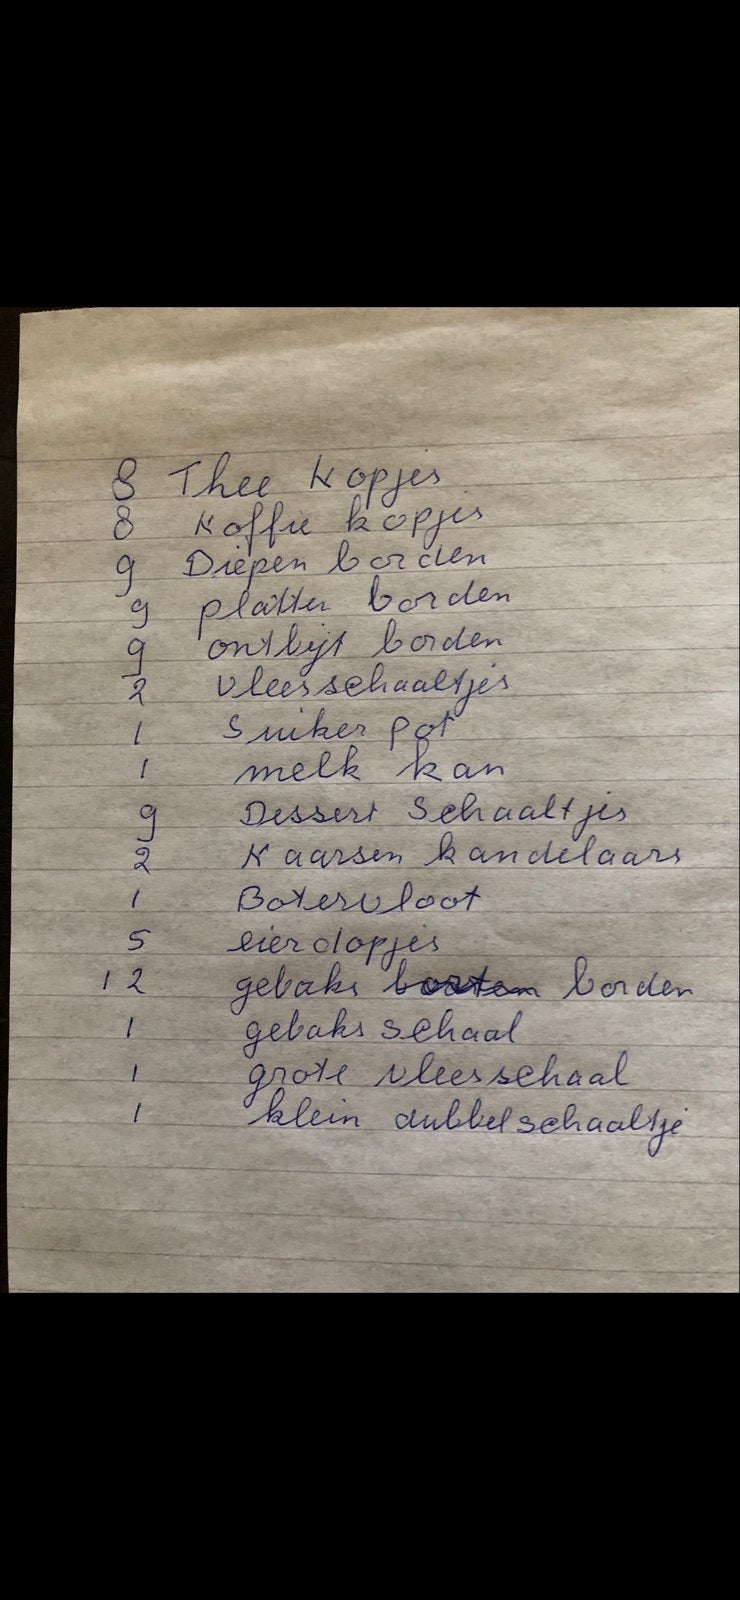 8 Thee Kopjes
8 Koffie kopjes
9 Diepen borden
9 platten borden
9 ontbijt borden
2 vleesschaaltjes
1 Suiker pot
1 melk kan
9 Dessert Schaaltjes
2 Kaarsen kandelaars
1 Botervloot
5 eierdopjes
12 gebaks borden
1 gebaks schaal
1 grote vleesschaal
1 klein dubbelschaaltje